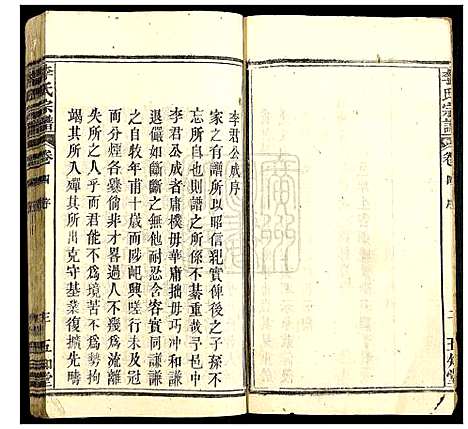 李氏宗譜
卷四序
五知堂
李君公成序
家之有譜所以昭信犯實俾後之子孫不
忘所自也則譜之所係不綦重哉吾邑中
李君公成者庸樸毋華庸拙毋巧冲和謙
退儼如斷斷之無他耐恐含客實同謙謙
之自牧年甫十歲而陟屺興嗟行未幾
而分煙各爨偷非才畧過人不幾爲流離
失所之人乎而君能不爲境苦不爲勢拘
竭其所入殫其所出克守基業復擴先疇
李氏宗譜
卷四
序
二
五知堂